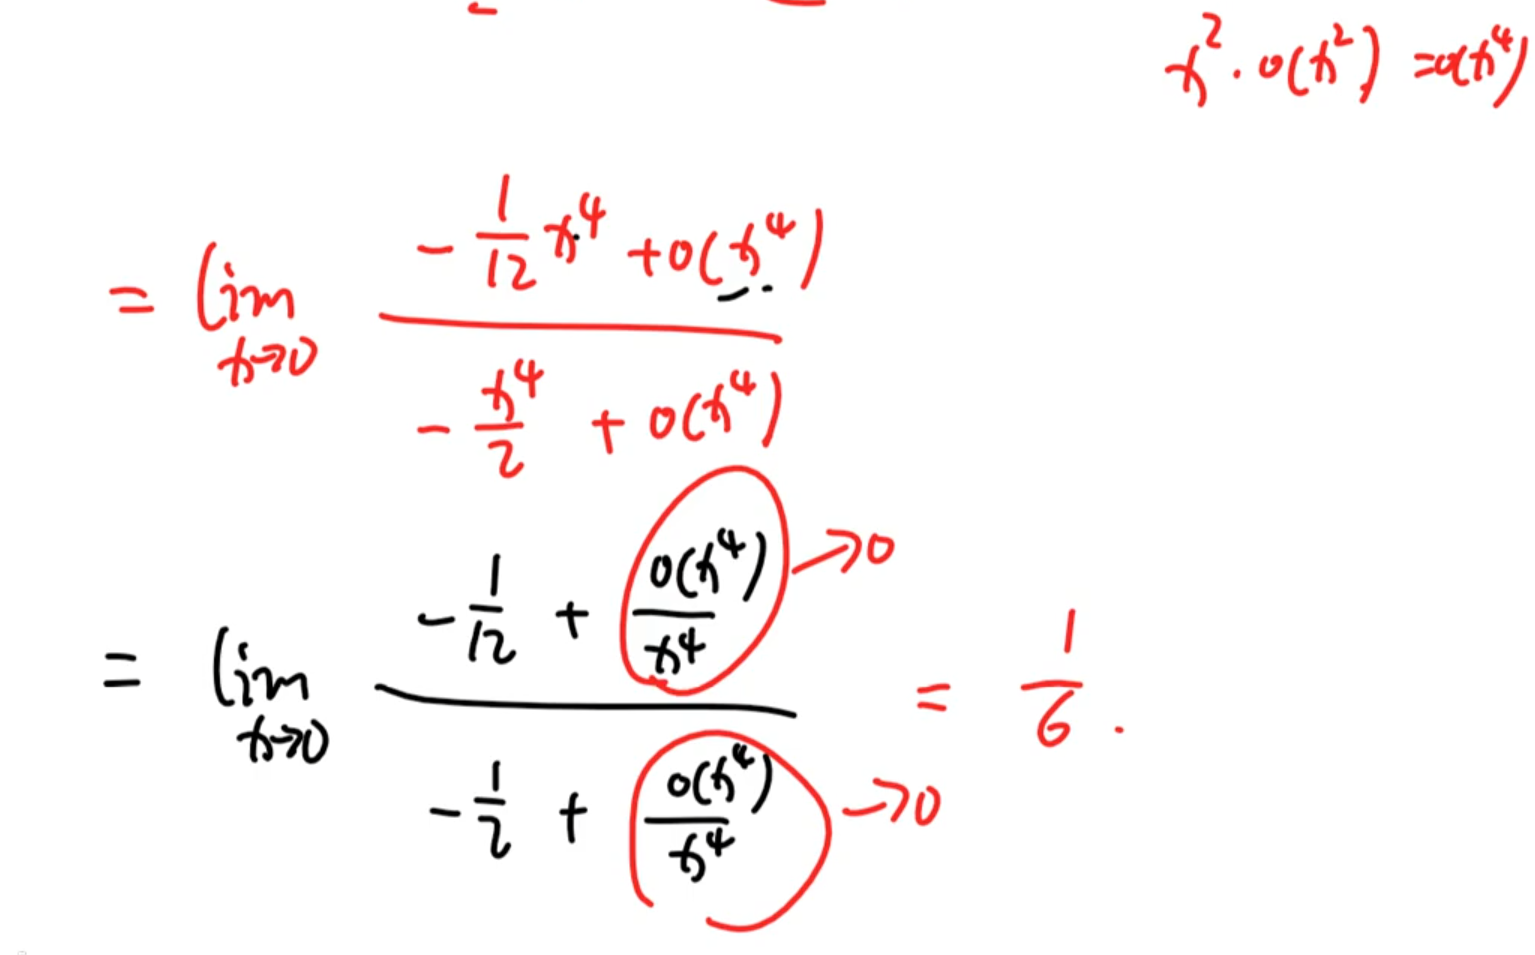 x² · o(x²) = o(x⁴)
= lim_{x→0} \frac{-\frac{1}{12}x⁴ + o(x⁴)}{-\frac{x⁴}{2} + o(x⁴)}
= lim_{x→0} \frac{-\frac{1}{12} + \frac{o(x⁴)}{x⁴} → 0}{-\frac{1}{2} + \frac{o(x⁴)}{x⁴} → 0} = \frac{1}{6}.